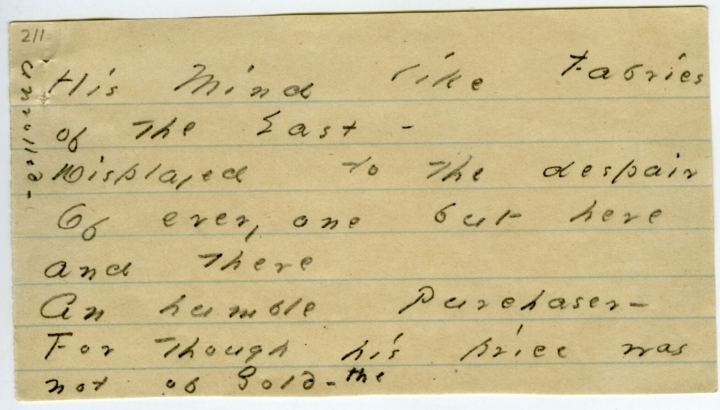 211
unrolled -
His Mind like Fabrics
of the East -
Displayed to the despair
Of every one but here
and there
An humble Purchaser -
For though his price was
not of Gold - the